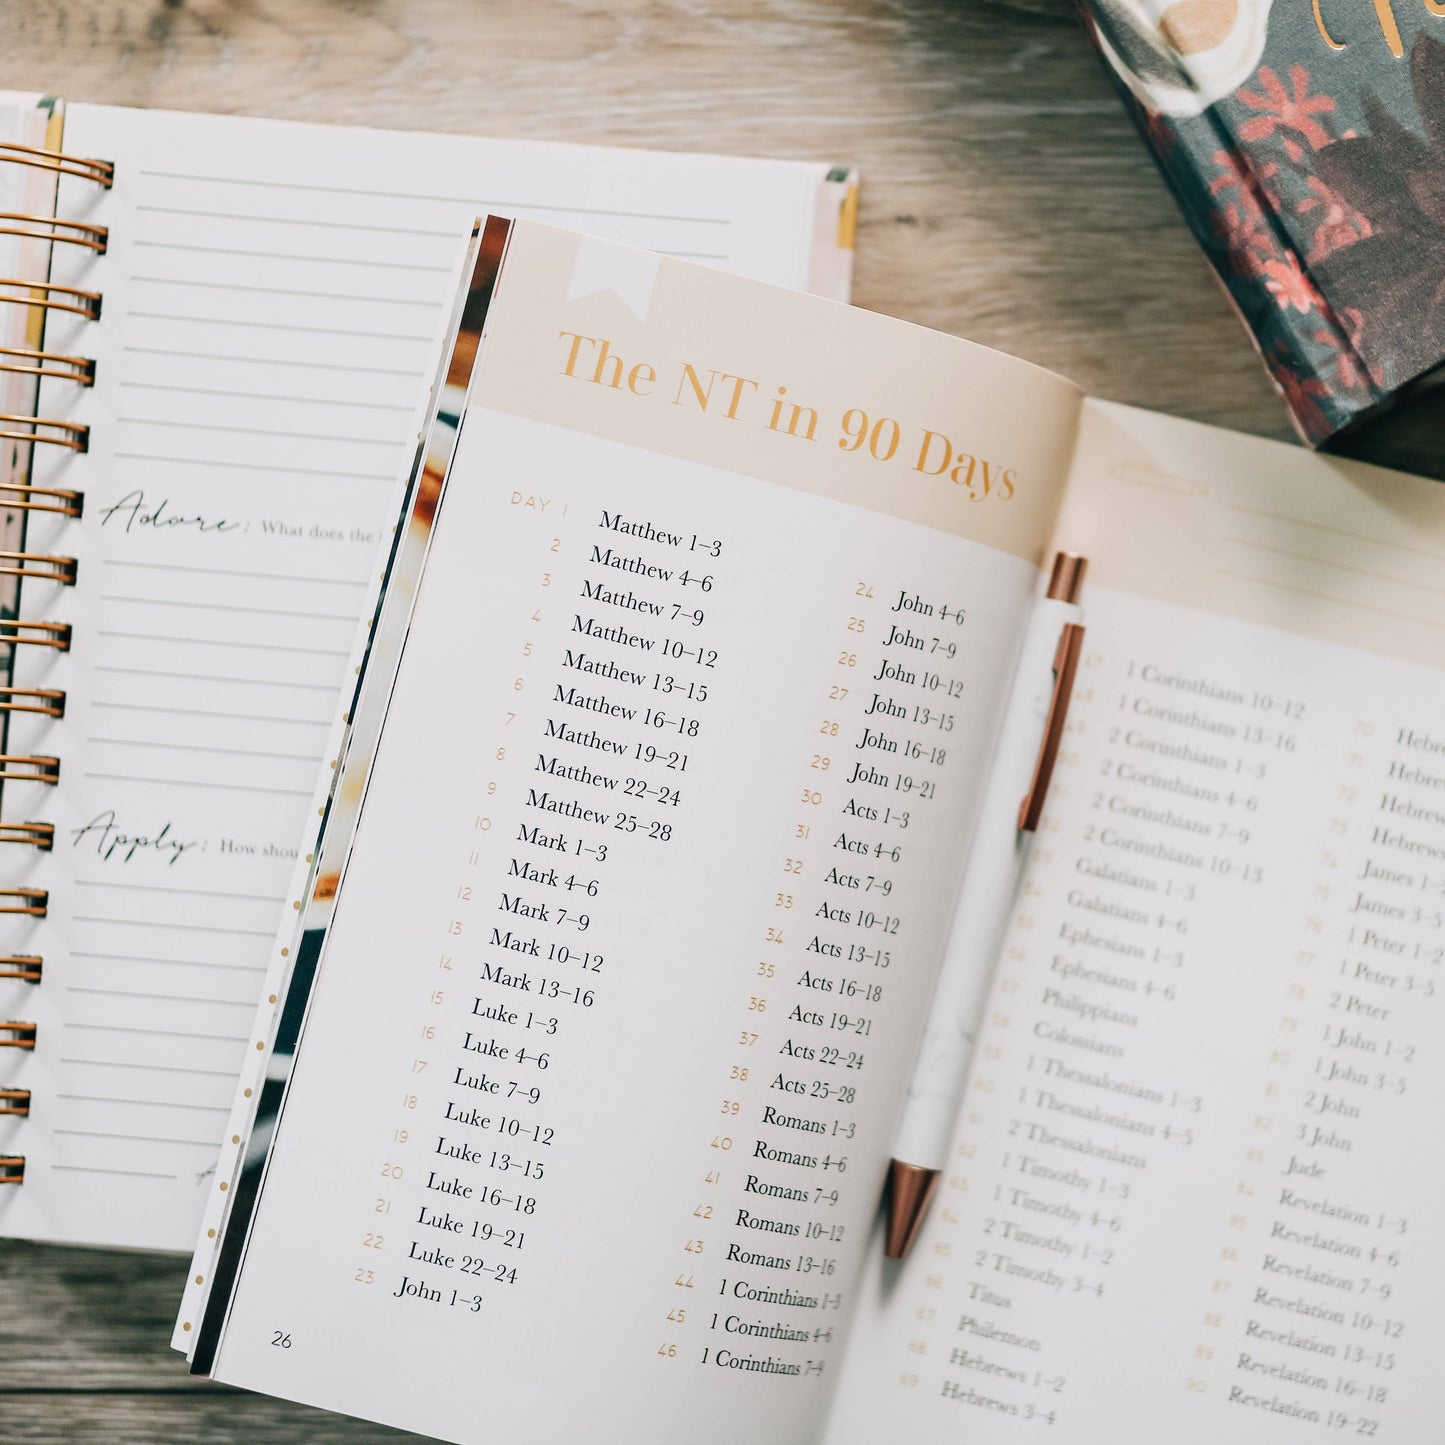 Adore: What does the
Apply: How shou
The NT in 90 Days
DAY 1 Matthew 1–3
2 Matthew 4–6
3 Matthew 7–9
4 Matthew 10–12
5 Matthew 13–15
6 Matthew 16–18
7 Matthew 19–21
8 Matthew 22–24
9 Matthew 25–28
10 Mark 1–3
11 Mark 4–6
12 Mark 7–9
13 Mark 10–12
14 Mark 13–16
15 Luke 1–3
16 Luke 4–6
17 Luke 7–9
18 Luke 10–12
19 Luke 13–15
20 Luke 16–18
21 Luke 19–21
22 Luke 22–24
23 John 1–3
24 John 4–6
25 John 7–9
26 John 10–12
27 John 13–15
28 John 16–18
29 John 19–21
30 Acts 1–3
31 Acts 4–6
32 Acts 7–9
33 Acts 10–12
34 Acts 13–15
35 Acts 16–18
36 Acts 19–21
37 Acts 22–24
38 Acts 25–28
39 Romans 1–3
40 Romans 4–6
41 Romans 7–9
42 Romans 10–12
43 Romans 13–16
44 1 Corinthians 1–3
45 1 Corinthians 4–6
46 1 Corinthians 7–9
26
47 1 Corinthians 10–12
48 1 Corinthians 13–16
49 2 Corinthians 1–3
50 2 Corinthians 4–6
51 2 Corinthians 7–9
52 2 Corinthians 10–13
53 Galatians 1–3
54 Galatians 4–6
55 Ephesians 1–3
56 Ephesians 4–6
57 Philippians
58 Colossians
59 1 Thessalonians 1–3
60 1 Thessalonians 4–5
61 2 Thessalonians
62 1 Timothy 1–3
63 1 Timothy 4–6
64 2 Timothy 1–2
65 2 Timothy 3–4
66 Titus
67 Philemon
68 Hebrews 1–2
69 Hebrews 3–4
70 Hebre
71 Hebrew
72 Hebrew
73 Hebrews
74 James 1–2
75 James 3–5
76 1 Peter 1–2
77 1 Peter 3–5
78 2 Peter
79 1 John 1–2
80 1 John 3–5
81 2 John
82 3 John
83 Jude
84 Revelation 1–3
85 Revelation 4–6
86 Revelation 7–9
87 Revelation 10–12
88 Revelation 13–15
89 Revelation 16–18
90 Revelation 19–22